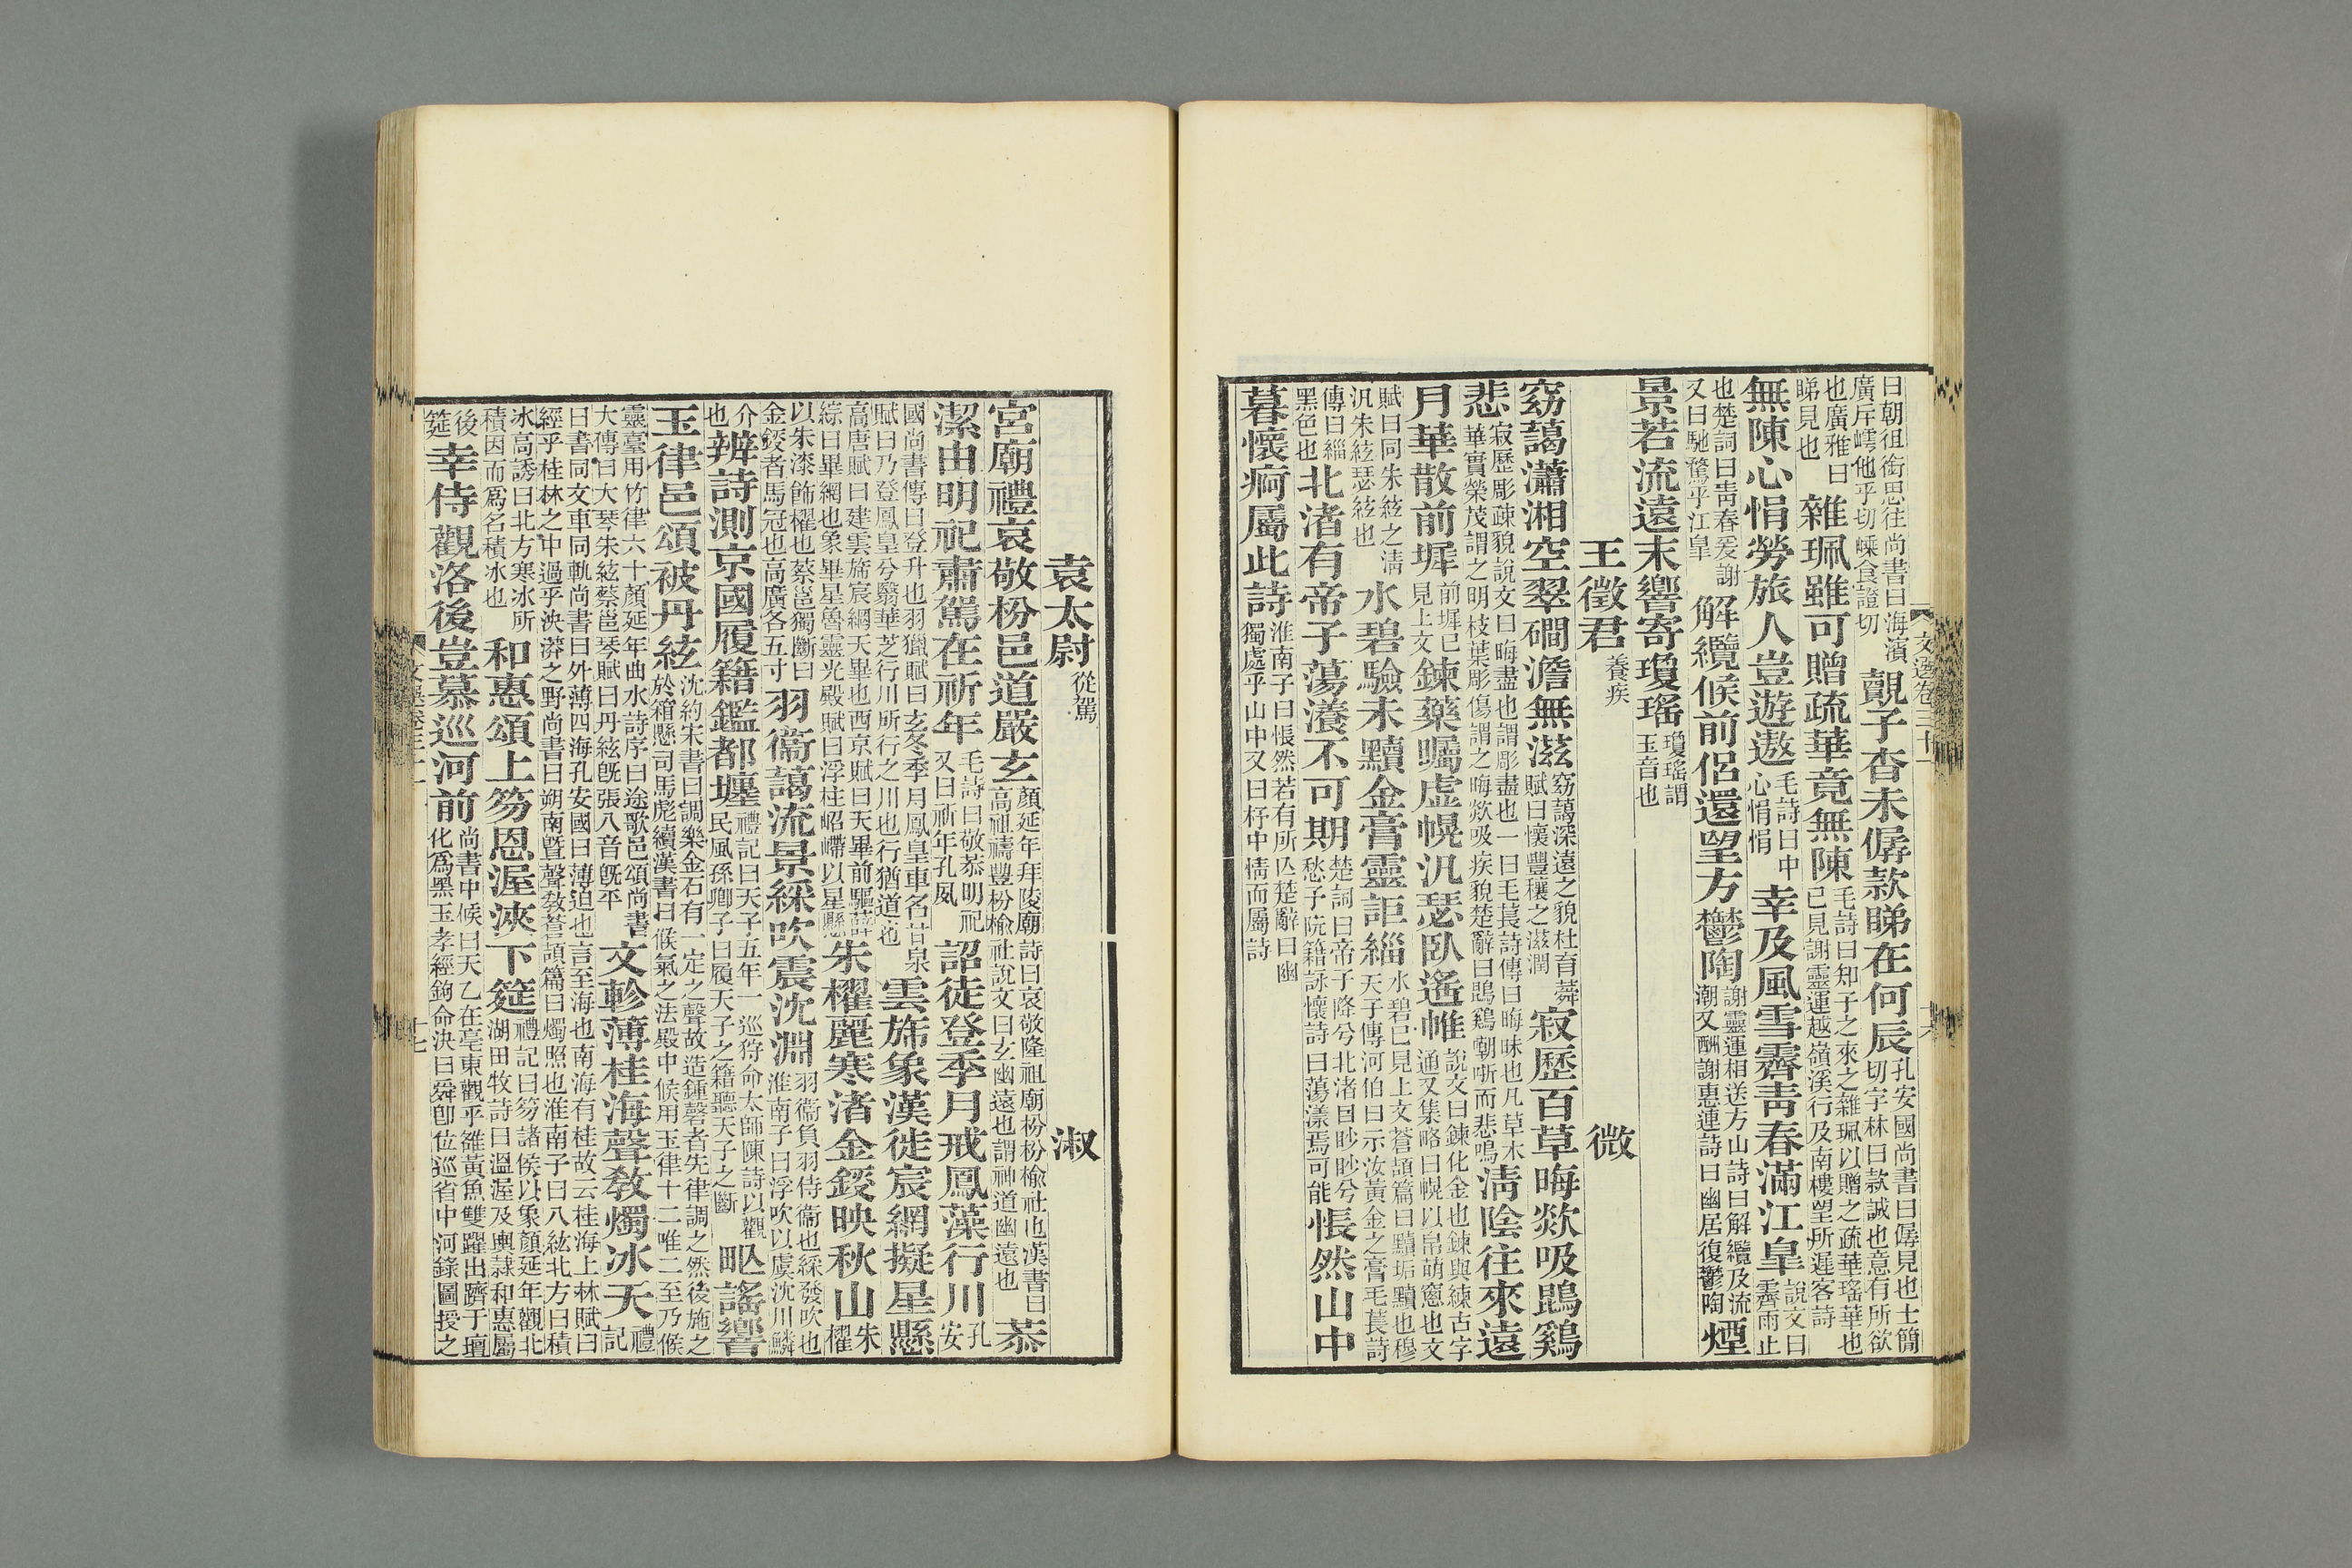 曰朝徂銜思往尚書曰海濱
廣斥嶀他乎切嵊食證切
覿子杳未僝款睇在何辰
孔安國尚書曰僝見也士簡
切字林曰款誠也意有所欲
也廣雅曰
睇見也
雜珮雖可贈疏華竟無陳
毛詩曰知子之來之雜珮以贈之疏華瑤華也
已見謝靈運越嶺溪行及南樓望所遲客詩
無陳心悁勞旅人豈遊遨
毛詩曰中
心悁悁
幸及風雪霽靑春滿江皐
說文曰
霽雨止
也楚詞曰靑春爰謝
又曰馳騖乎江皐
解纜候前侶還望方鬱陶
謝靈運相送方山詩曰解纜及流
潮又酬謝惠連詩曰幽居復鬱陶
煙
景若流遠末響寄瓊瑤
瓊瑤謂
玉音也
王徵君
養疾
微
窈藹瀟湘空翠磵澹無滋
窈藹深遠之貌杜育荈
賦曰懷豐穰之滋潤
寂歷百草晦欻吸鵾鷄
悲
寂歷彫疎貌說文曰晦盡也謂彫盡也一曰毛萇詩傳曰晦昧也凡草木
華實榮茂謂之明枝葉彫傷謂之晦欻吸疾貌楚辭曰鵾鷄朝哳而悲鳴
淸陰往來遠
月華散前墀
前墀已
見上文
鍊藥矚虛幌汎瑟臥遙帷
說文曰鍊化金也鍊與練古字
通又集略曰幌以帛萌窻也文
賦曰同朱絃之淸
汎朱絃瑟絃也
水碧驗未黷金膏靈詎緇
水碧已見上文蒼頡篇曰黷垢黷也穆
天子傳河伯曰示汝黃金之膏毛萇詩
傳曰緇
黑色也
北渚有帝子蕩瀁不可期
楚詞曰帝子降兮北渚目眇眇兮
愁子阮籍詠懷詩曰蕩漾焉可能
悵然山中
暮懷痾屬此詩
淮南子曰悵然若有所亾楚辭曰幽
獨處乎山中又曰杼中情而屬詩
文選卷三十一
十六
袁太尉
從駕
淑
宮廟禮哀敬枌邑道嚴玄
顏延年拜陵廟詩曰哀敬隆祖廟枌枌榆社也漢書曰
高祖禱豐枌榆社說文曰玄幽遠也謂神道幽遠也
恭
潔由明祀肅駕在祈年
毛詩曰敬恭明祀
又曰祈年孔夙
詔徒登季月戒鳳藻行川
孔
安
國尚書傳曰登升也羽獵賦曰玄冬季月鳳皇車名甘泉
賦曰乃登鳳皇兮翳華芝行川所行之川也行猶道也
雲旆象漢徙宸網擬星懸
高唐賦曰建雲旆宸網天畢也西京賦曰天畢前驅薛
綜曰畢網也象畢星魯靈光殿賦曰浮柱岧嵽以星懸
朱櫂麗寒渚金鋄映秋山
朱
櫂
以朱漆飾櫂也蔡邕獨斷曰
金鋄者馬冠也高廣各五寸
羽衞藹流景綵吹震沈淵
羽衞負羽侍衞也綵發吹也
淮南子曰浮吹以虞沈川鱗
介
也
辨詩測京國履籍鑑都壥
禮記曰天子五年一巡狩命太師陳詩以觀
民風孫卿子曰履天子之籍聽天子之斷
甿謠響
玉律邑頌被丹絃
沈約宋書曰調樂金石有一定之聲故造鍾磬者先律調之然後施之
於箱懸司馬彪續漢書曰候氣之法殿中候用玉律十二唯二至乃候
靈臺用竹律六十顏延年曲水詩序曰途歌邑頌尚書
大傳曰大琴朱絃蔡邕琴賦曰丹絃旣張八音旣平
文軫薄桂海聲敎燭冰天
禮
記
曰書同文車同軌尚書曰外薄四海孔安國曰薄迫也言至海也南海有桂故云桂海上林賦曰
經乎桂林之中過乎泱漭之野尚書曰朔南曁聲敎蒼頡篇曰燭照也淮南子曰八紘北方曰積
冰高誘曰北方寒冰所
積因而爲名積冰也
和惠頌上笏恩渥浹下筵
禮記曰笏諸侯以象顏延年觀北
湖田牧詩曰溫渥及輿隷和惠屬
後
筵
幸侍觀洛後豈慕巡河前
尚書中候曰天乙在亳東觀乎雒黃魚雙躍出躋于壇
化爲黑玉孝經鉤命決曰舜卽位巡省中河錄圖授之
文選卷三十一
十七